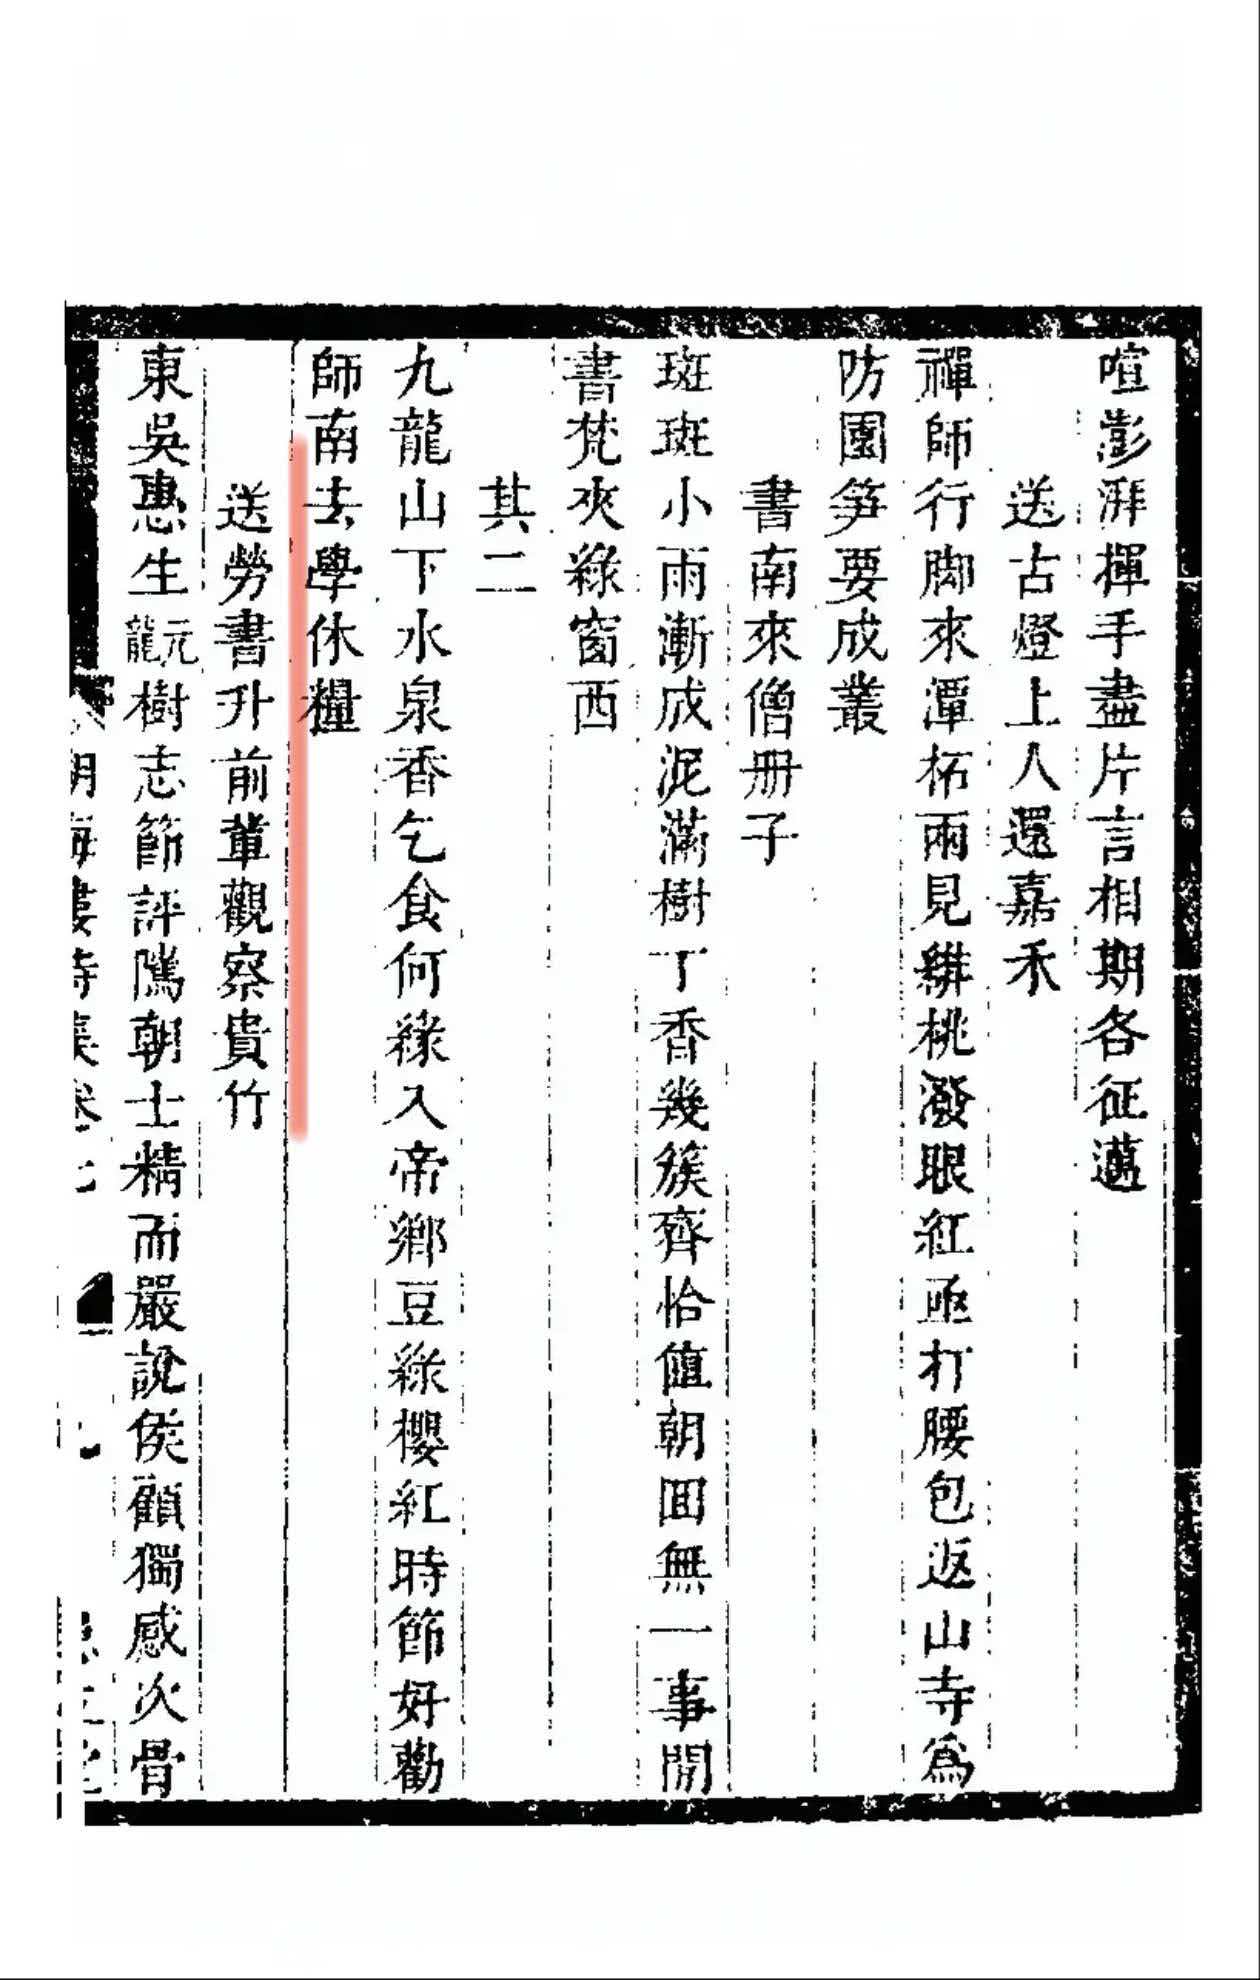 喧澎湃揮手盡片言相期各征邁
送古燈上人還嘉禾
禪師行脚來潭柘兩見緋桃潑眼紅亟打腰包返山寺爲
防園笋要成叢
書南來僧册子
斑斑小雨漸成泥滿樹丁香幾簇齊恰値朝回無一事閒
書梵夾綠窗西
其二
九龍山下水泉香乞食何緣入帝鄉豆綠櫻紅時節好勸
師南去學休糧
送勞書升前輩觀察貴竹
東吳惠生元龍樹志節評隲朝士精而嚴說侯顧獨感次骨